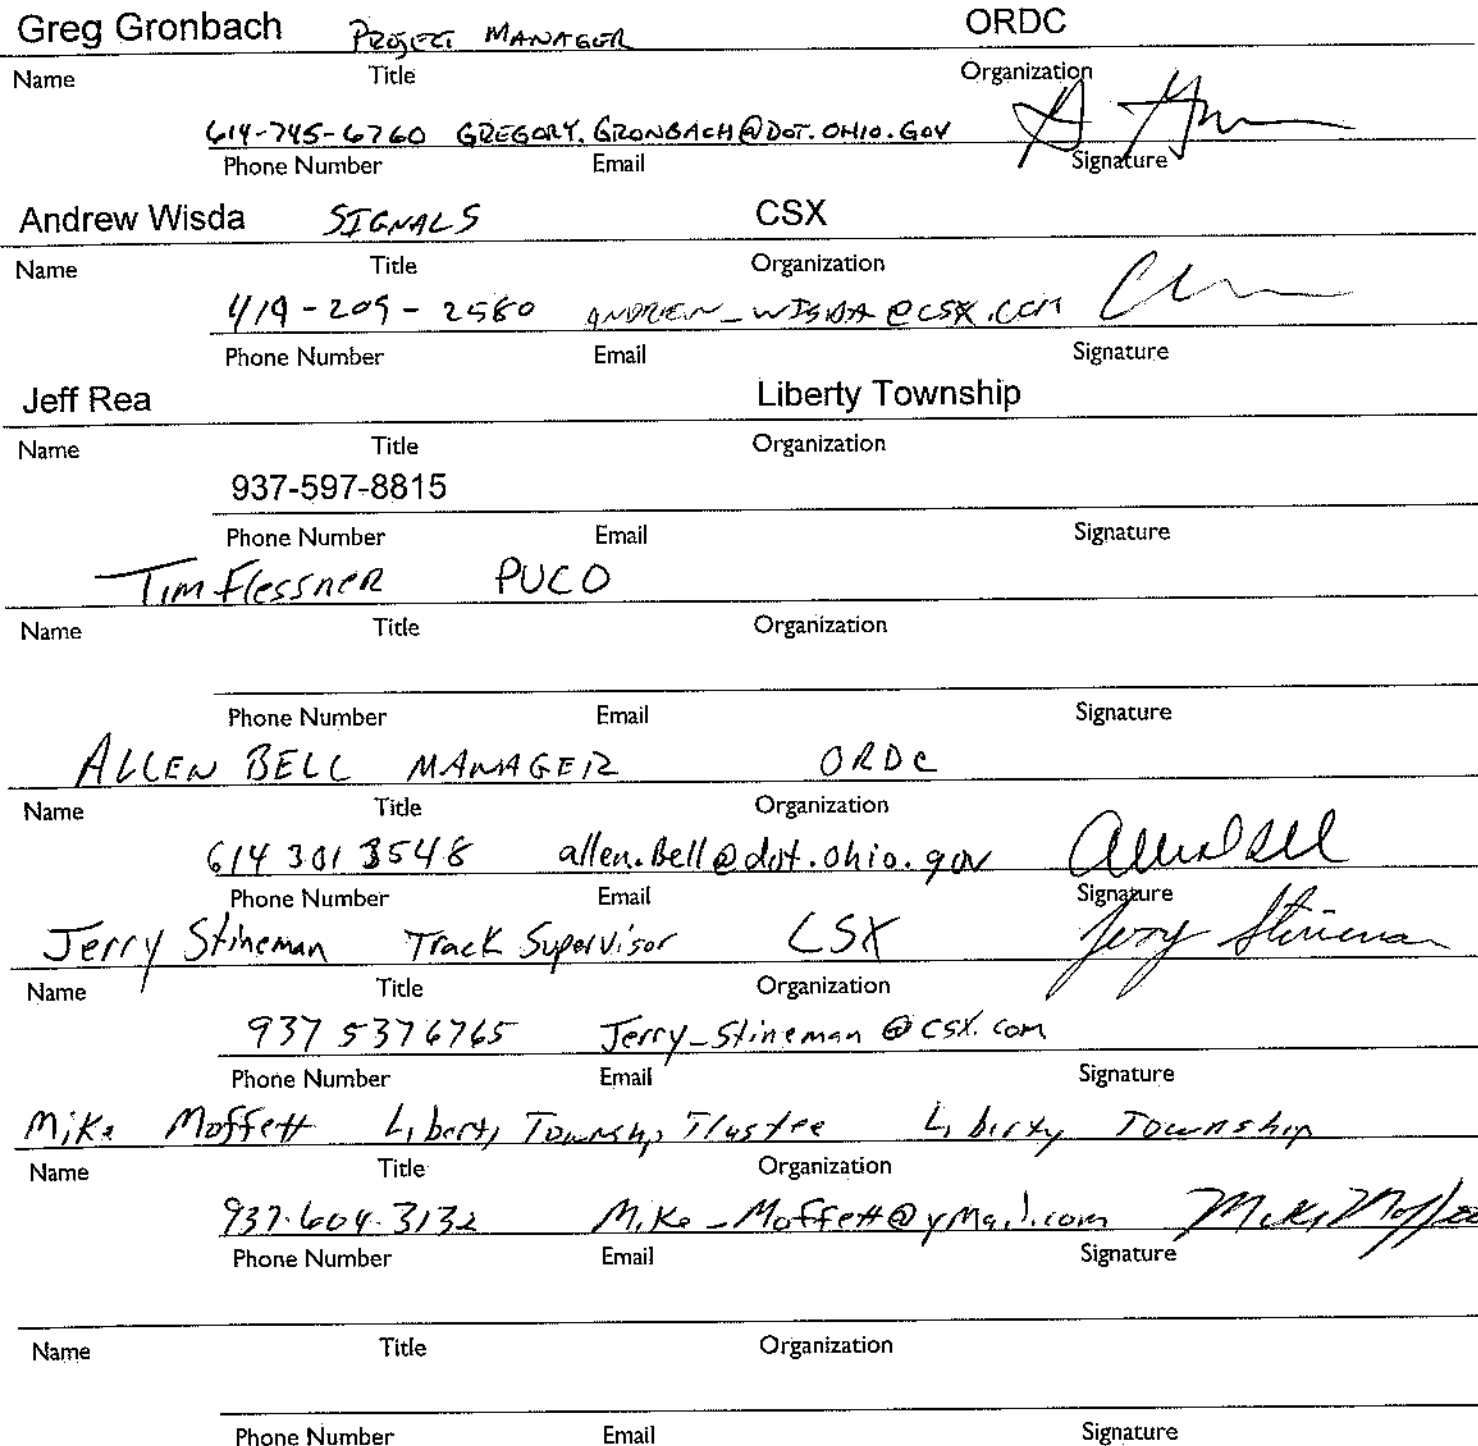 Greg Gronbach PROJECT MANAGER ORDC
Name Title Organization
614-745-6760 GREGORY.GRONBACH@DOT.OHIO.GOV
Phone Number Email Signature
Andrew Wisda SIGNALS CSX
Name Title Organization
419-209-2580 ANDREW_WISDA@CSX.COM
Phone Number Email Signature
Jeff Rea Liberty Township
Name Title Organization
937-597-8815
Phone Number Email Signature
Tim Flessner PUCO
Name Title Organization
Phone Number Email Signature
ALLEN BELL MANAGER ORDC
Name Title Organization
614 301 3548 allen.Bell@dot.ohio.gov
Phone Number Email Signature
Jerry Stineman Track Supervisor CSX Jerry Stineman
Name Title Organization
937 5376765 Jerry_Stineman@csx.com
Phone Number Email Signature
Mike Moffett Liberty Township Trustee Liberty Township
Name Title Organization
937.604.3132 Mike_Moffett@yMail.com Mike Moffett
Phone Number Email Signature
Name Title Organization
Phone Number Email Signature